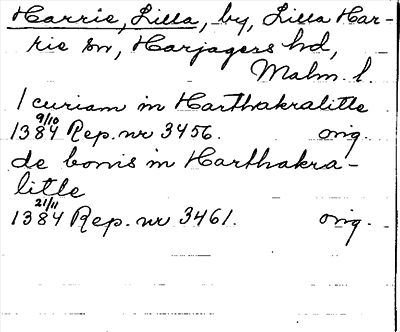 Harrie, Lilla, by, Lilla Har-
rie sn, Harjagers hd,
Malm. l.
1 curiam in Harthakralitle
9/10
1384 Rep. nr 3456. orig.
de bonis in Harthakra-
litle
21/11
1384 Rep. nr 3461. orig.